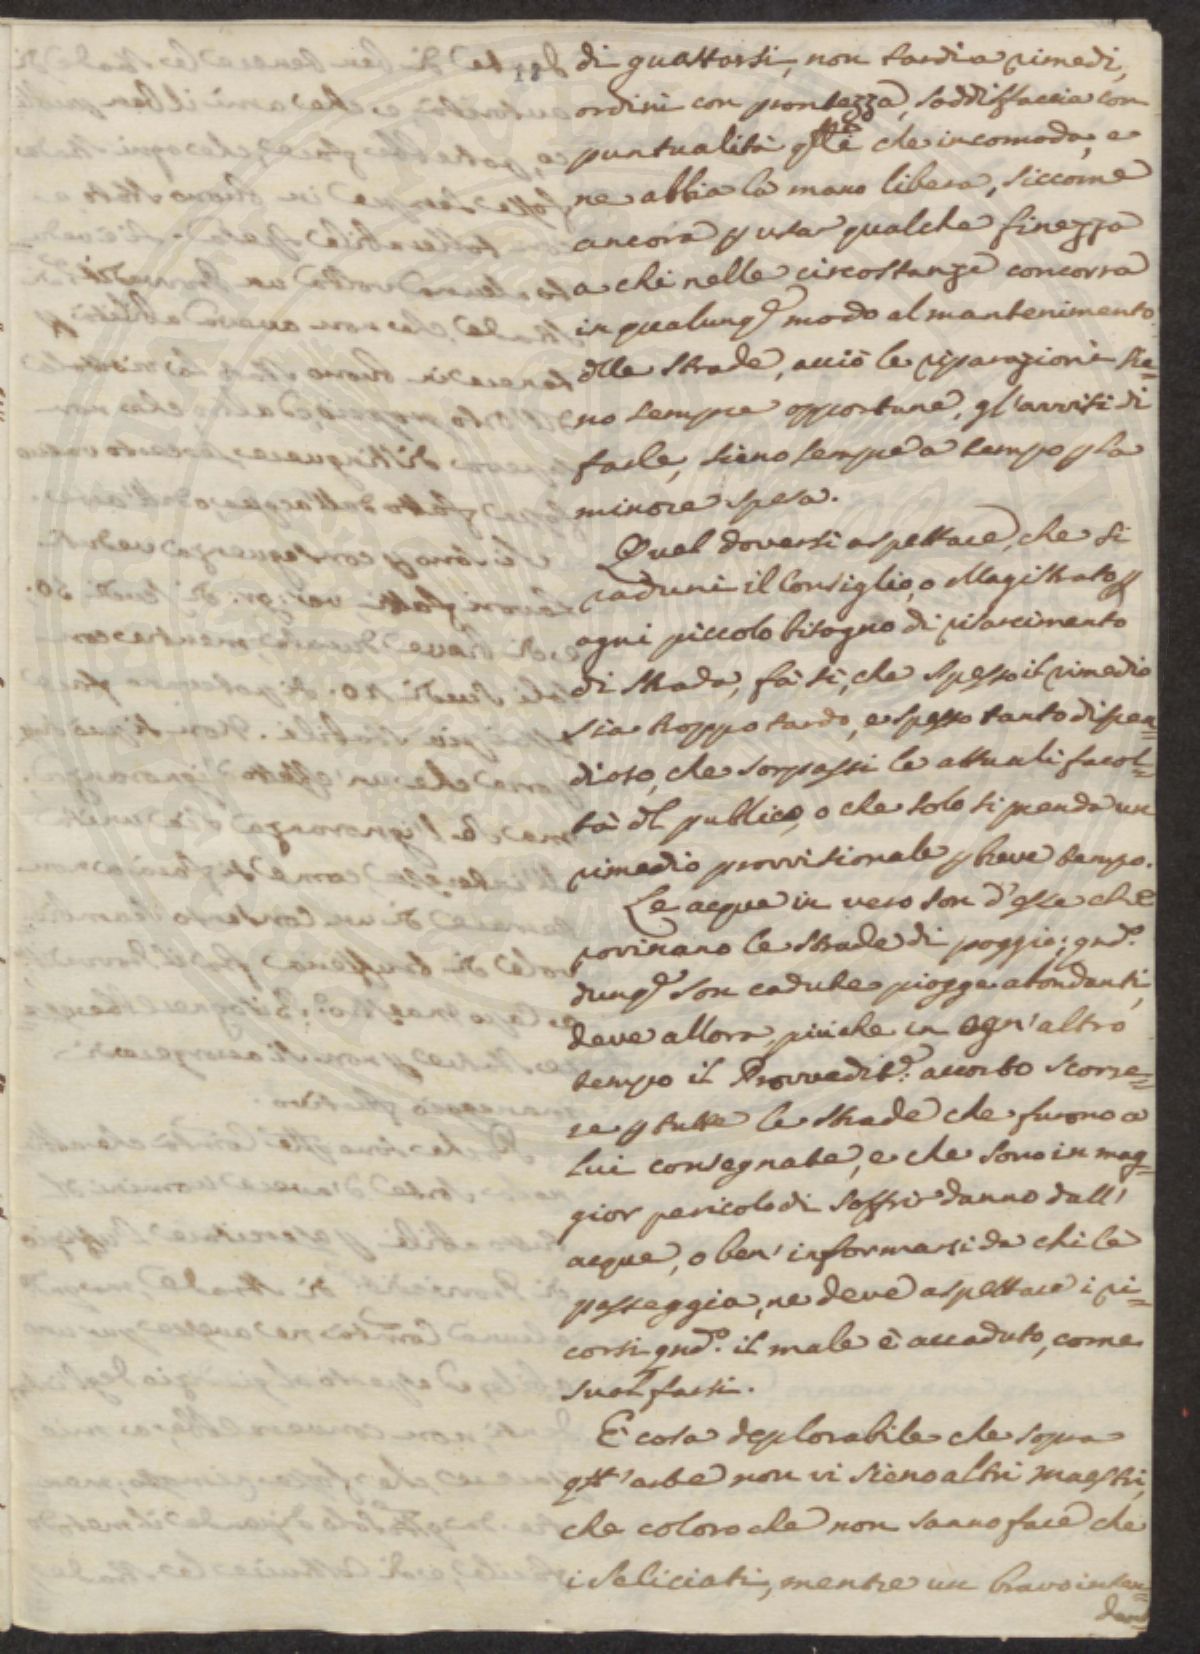 di guastarsi, non tardi a rimedi,
ordini con prontezza, soddisfaccia con
puntualità che incomoda, e
ne abbia la mano libera, siccome
ancora p usar qualche finezza
a chi nelle circostanze concorra
in qualunq modo al mantenimento
dlle strade, acciò le riparazioni sie=
no sempre opportune, gl'avvisi di
farle, sieno sempre a tempo p la
minore spesa.
Quel doversi aspettare, che si
raduni il Consiglio, o Magistrato p
ogni piccolo bisogno di risarcimento
di strada, fà sì, che spesso il rimedio
sia troppo tardo, e spesso tanto dispen=
dioso, che sorpassi le attuali facol=
tà dl publico, o che solo si prenda un
rimedio provvisionale p breve tempo.
Le acque in vero son d'esse che
rovinano le strade di poggio; qndo
dunq son cadute piogge abondanti,
deve allora, più che in ogn'altro
tempo il Provvedite: accorto scorre=
re p tutte le strade che furono a
lui consegnate, e che sono in mag=
gior pericolo di soffrir danno dall'
acque, o ben' informarsi da chi le
passeggia, ne deve aspettare i ri=
corsi qndo il male è accaduto, come
suol farsi.
E' cosa deplorabile che sopra
qst'arte non vi sieno altri Maestri,
che coloro che non sanno fare che
i Seliciati, mentre un bravo inten=
dent